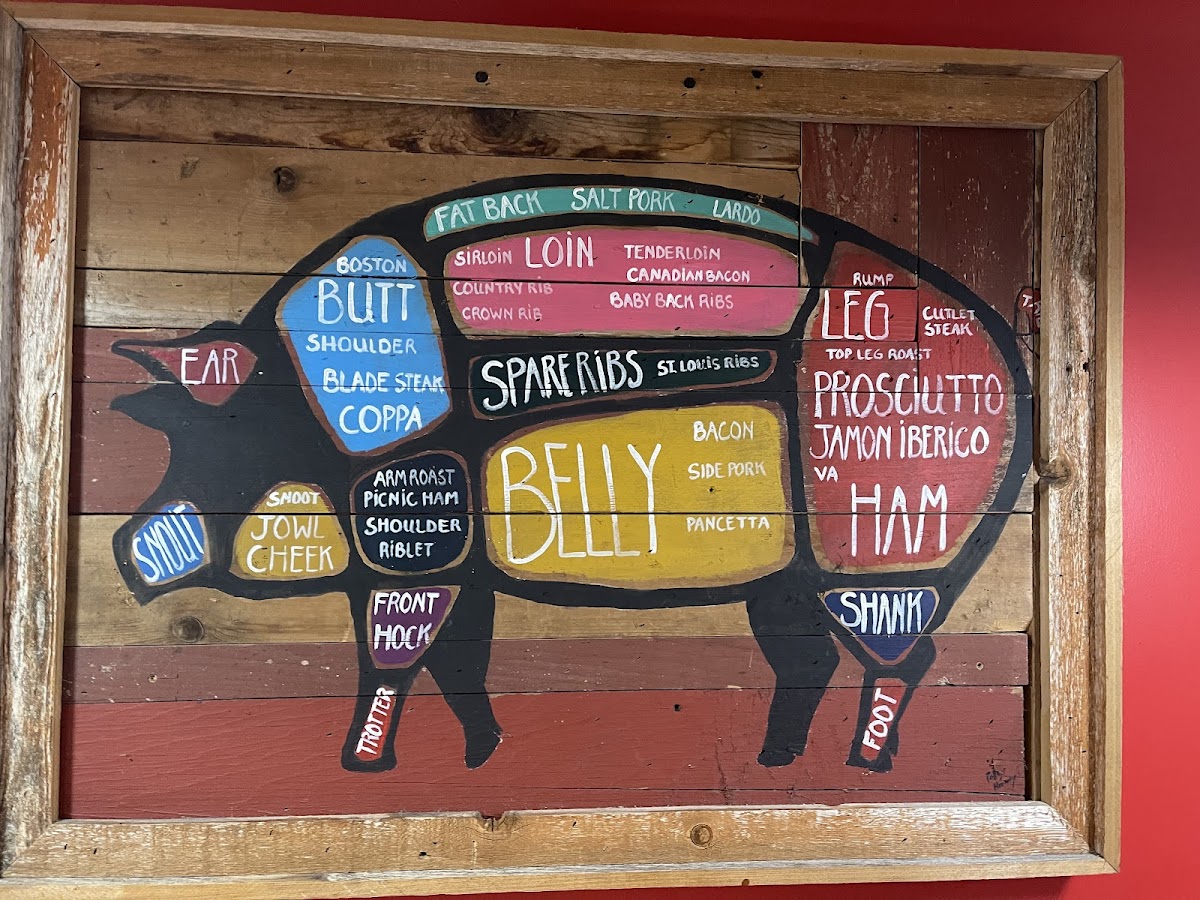 FAT BACK SALT PORK LARDO
SIRLOIN LOIN TENDERLOIN
CANADIAN BACON
COUNTRY RIB BABY BACK RIBS
CROWN RIB
BOSTON
BUTT
SHOULDER
BLADE STEAK
COPPA
EAR
SPARE RIBS ST. LOUIS RIBS
RUMP
LEG CUTLET
STEAK
TOP LEG ROAST
PROSCIUTTO
JAMON IBERICO
VA
HAM
BELLY
BACON
SIDE PORK
PANCETTA
ARM ROAST
PICNIC HAM
SHOULDER
RIBLET
SNOOT
JOWL
CHEEK
SNOUT
FRONT
HOCK
SHANK
TROTTER
FOOT